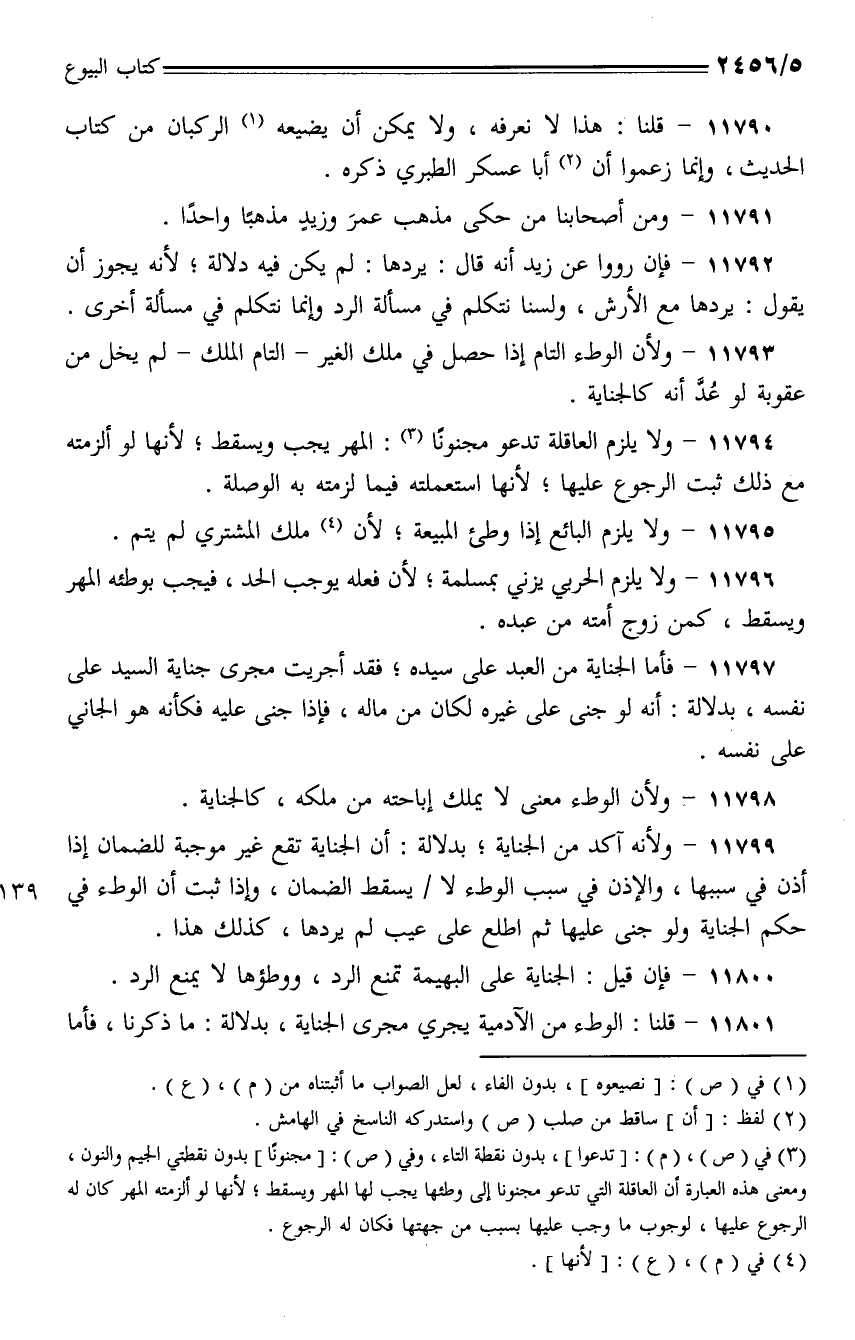 ٢٤٥٦/٥ كتاب البيوع
١١٧٩٠ - قلنا : هذا لا نعرفه ، ولا يمكن أن يضيعه (١) الركبان من كتاب
الحديث ، وإنما زعموا أن (٢) أبا عسكر الطبري ذكره .
١١٧٩١ - ومن أصحابنا من حكى مذهب عمرَ وزيدٍ مذهبًا واحدًا .
١١٧٩٢ - فإن رووا عن زيد أنه قال : يردها : لم يكن فيه دلالة ؛ لأنه يجوز أن
يقول : يردها مع الأرش ، ولسنا نتكلم في مسألة الرد وإنما نتكلم في مسألة أخرى .
١١٧٩٣ - ولأن الوطء التام إذا حصل في ملك الغير - التام الملك - لم يخل من
عقوبة لو عُدَّ أنه كالجناية .
١١٧٩٤ - ولا يلزم العاقلة تدعو مجنونًا (٣) : المهر يجب ويسقط ؛ لأنها لو ألزمته
مع ذلك ثبت الرجوع عليها ؛ لأنها استعملته فيما لزمته به الوصلة .
١١٧٩٥ - ولا يلزم البائع إذا وطئ المبيعة ؛ لأن (٤) ملك المشتري لم يتم .
١١٧٩٦ - ولا يلزم الحربي يزني بمسلمة ؛ لأن فعله يوجب الحد ، فيجب بوطئه المهر
ويسقط ، كمن زوج أمته من عبده .
١١٧٩٧ - فأما الجناية من العبد على سيده ؛ فقد أجريت مجرى جناية السيد على
نفسه ، بدلالة : أنه لو جنى على غيره لكان من ماله ، فإذا جنى عليه فكأنه هو الجاني
على نفسه .
١١٧٩٨ - ولأن الوطء معنى لا يملك إباحته من ملكه ، كالجناية .
١١٧٩٩ - ولأنه آكد من الجناية ؛ بدلالة : أن الجناية تقع غير موجبة للضمان إذا
أذن في سببها ، والإذن في سبب الوطء لا / يسقط الضمان ، وإذا ثبت أن الوطء في ١٣٩
حكم الجناية ولو جنى عليها ثم اطلع على عيب لم يردها ، كذلك هذا .
١١٨٠٠ - فإن قيل : الجناية على البهيمة تمنع الرد ، ووطؤها لا يمنع الرد .
١١٨٠١ - قلنا : الوطء من الآدمية يجري مجرى الجناية ، بدلالة : ما ذكرنا ، فأما
(١) في ( ص ) : [ نصيعوه ] ، بدون الفاء ، لعل الصواب ما أثبتناه من ( م ) ، ( ع ) .
(٢) لفظ : [ أن ] ساقط من صلب ( ص ) واستدركه الناسخ في الهامش .
(٣) في ( ص ) ، ( م ) : [ تدعوا ] ، بدون نقطة التاء ، وفي ( ص ) : [ مجنونًا ] بدون نقطتي الجيم والنون ،
ومعنى هذه العبارة أن العاقلة التي تدعو مجنونا إلى وطئها يجب لها المهر ويسقط ؛ لأنها لو ألزمته المهر كان له
الرجوع عليها ، لوجوب ما وجب عليها بسبب من جهتها فكان له الرجوع .
(٤) في ( م ) ، ( ع ) : [ لأنها ] .